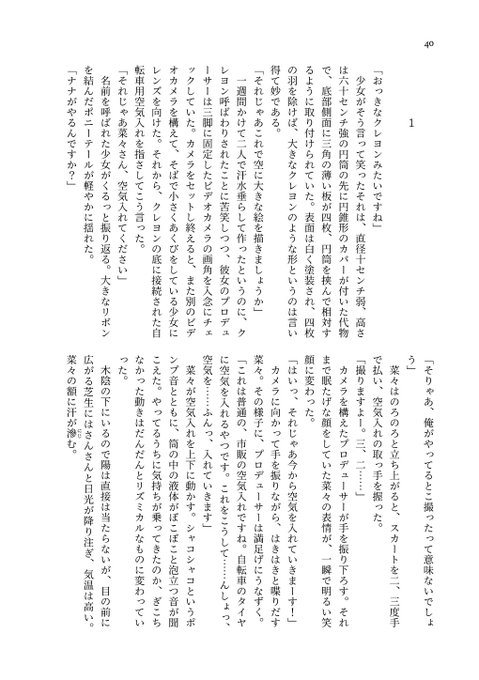 40
1
「おっきなクレヨンみたいですね」
少女がそう言って笑ったそれは、直径十センチ弱、高さ
は六十センチ強の円筒の先に円錐形のカバーが付いた代物
で、底部側面に三角の薄い板が四枚、円筒を挟んで相対す
るように取り付けられていた。表面は白く塗装され、四枚
の羽を除けば、大きなクレヨンのような形というのは言い
得て妙である。
「それじゃあこれで空に大きな絵を描きましょうか」
一週間かけて二人で汗水垂らして作ったというのに、ク
レヨン呼ばわりされたことに苦笑しつつ、彼女のプロデュ
ーサーは三脚に固定したビデオカメラの画角を入念にチェ
ックしていた。カメラをセットし終えると、また別のビデ
オカメラを構えて、そばで小さくあくびをしている少女に
レンズを向けた。それから、クレヨンの底に接続された自
転車用空気入れを指さしてこう言った。
「それじゃあ菜々さん、空気入れてください」
名前を呼ばれた少女がくるっと振り返る。大きなリボン
を結んだポニーテールが軽やかに揺れた。
「ナナがやるんですか？」
「そりゃあ、俺がやってるとこ撮ったって意味ないでしょ
う」
菜々はのろのろと立ち上がると、スカートを二、三度手
で払い、空気入れの取っ手を握った。
「撮りますよー。三、二……」
カメラを構えたプロデューサーが手を振り下ろす。それ
まで眠たげな顔をしていた菜々の表情が、一瞬で明るい笑
顔に変わった。
「はいっ、それじゃあ今から空気を入れていきまーす！」
カメラに向かって手を振りながら、はきはきと喋りだす
菜々。その様子に、プロデューサーは満足げにうなずく。
「これは普通の、市販の空気入れですね。自転車のタイヤ
に空気を入れるやつです。これをこうして……んしょっ、
空気を……ふんっ、入れていきます」
菜々が空気入れを上下に動かす。シャコシャコというポ
ンプ音とともに、筒の中の液体がぼこぼこと泡立つ音が聞
こえた。やってるうちに気持ちが乗ってきたのか、ぎこち
なかった動きはだんだんとリズミカルなものに変わってい
った。
木陰の下にいるので陽は直接は当たらないが、目の前に
広がる芝生にはさんさんと日光が降り注ぎ、気温は高い。
菜々の額に汗が滲む。
にじ